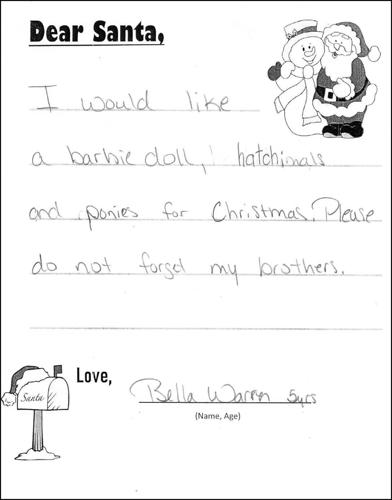 Dear Santa,
I would like
a barbie doll, hatchimals
and ponies for Christmas. Please
do not forget my brothers.
Santa
Love,
Bella Warren 5yrs
(Name, Age)